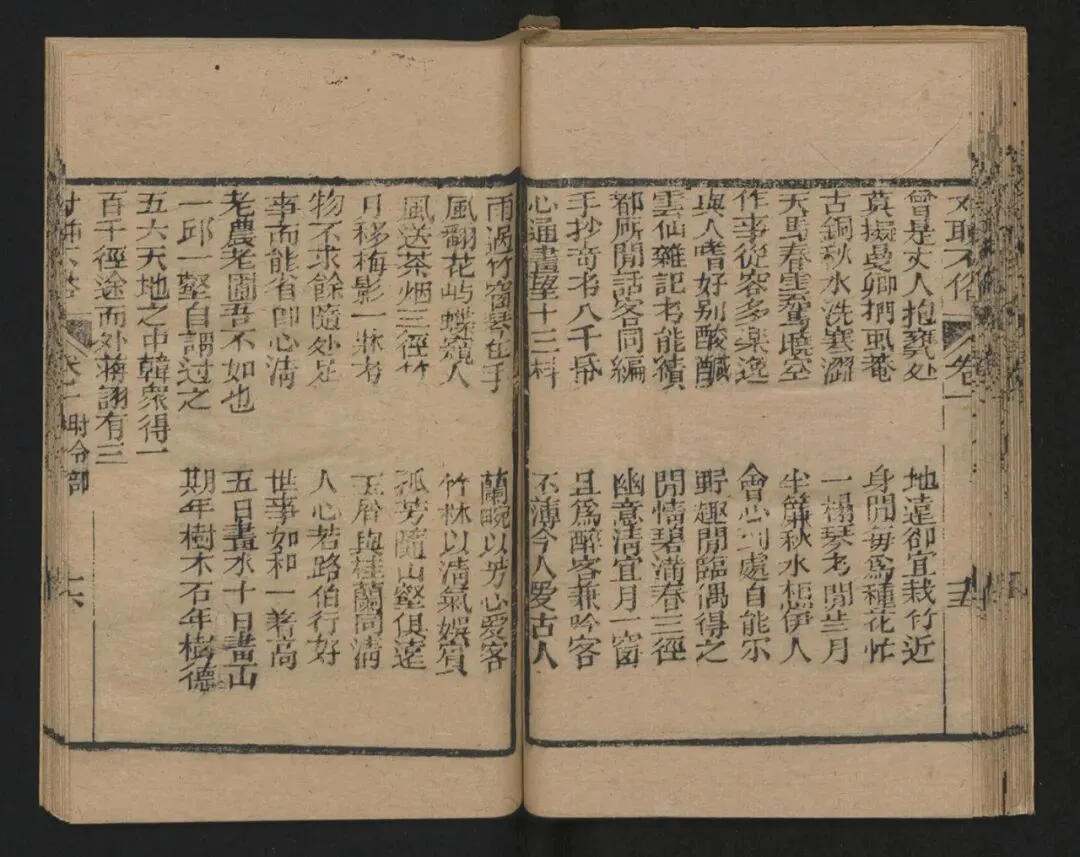 不俗 卷一
曾是丈人抱甕处 地遠卻宜栽竹近
莫擬曼卿捫虱菴 身閒每爲種花忙
古銅秋水洗寒澀 一榻琴书閒坐月
天馬春雲驀曉空 半簾秋水想伊人
作事從容多樂逸 會心到處自能乐
與人嗜好别酸鹹 野趣閒臨偶得之
雲仙雜記书能續 閒情碧滿春三徑
都厠閒話客同編 幽意清宜月一窗
手抄奇书八千帋 且爲醉客兼吟客
心通畫學十三科 不薄今人爱古人
雨過竹窗琴在手 蘭畹以芳心爱客
風翻花屿蝶窺人 竹林以清氣娛賓
風送茶烟三徑竹 孤芳隨山壑俱遠
月移梅影一牀书 玉屑與桂蘭同清
物不求餘隨处足 人心若路伯行好
事而能省即心清 世事如和一著高
老農老圃吾不如也 五日畫水十日畫山
一邱一壑自謂过之 期年樹木百年樹德
五六天地之中韓衆得一
百千徑途而外蔣詡有三
卷一 时令部 十六